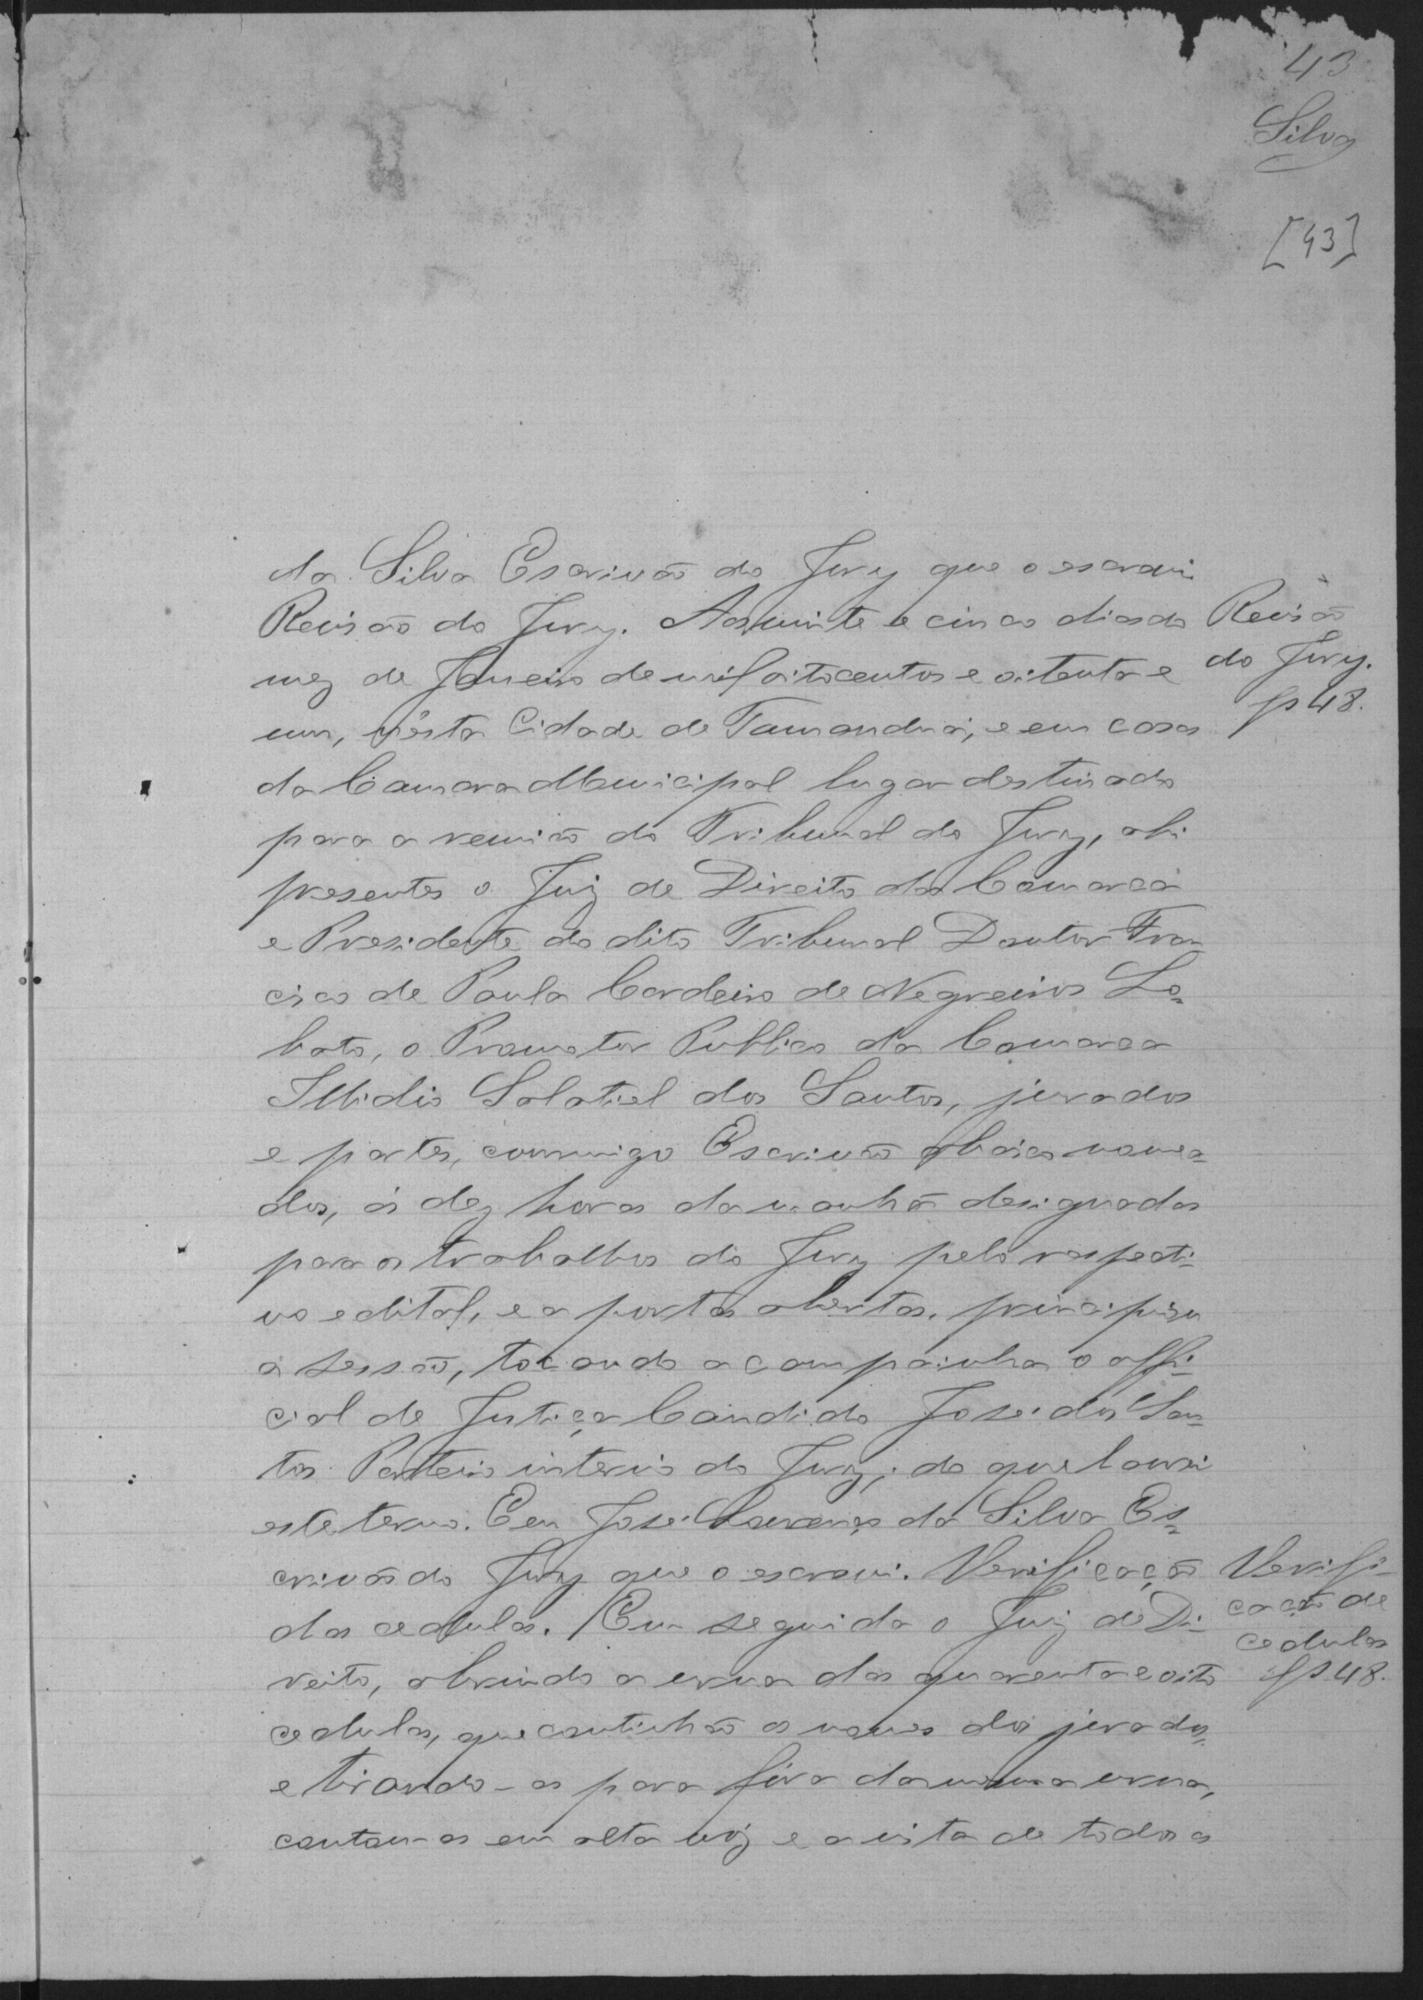 43
Silva
[43]
da Silva Escrivão do Jury que o escrevi
Revisão do Jury. Aos vinte e cinco dias do
mez de Janeiro de mil oitocentos e oitenta e
um, n'esta Cidade de Tamanduá, e em casa
da Camara Municipal lugar destinado
para a reunião do Tribunal do Jury, ahi
presentes o Juiz de Direito da Comarca
e Presidente do dito Tribunal Doutor Fran-
cisco de Paula Cordeiro de Negreiros Lo-
bato, o Promotor Publico da Comarca
Illidio Salatiel dos Santos, jurados
e partes, commigo Escrivão abaixo nomea-
dos, ás dez horas da manhã designadas
para os trabalhos do Jury pelo respecti-
vo edital, e a portas abertas, principiou
a sessão, tocando a campainha o offi-
cial de Justiça Candido José dos San-
tos Porteiro interino do Jury; do que lavrei
este termo. Eu José Lourenço da Silva Es-
crivão do Jury que o escrevi. Verificação
das cedulas. Em seguida o Juiz de Di-
reito, abrindo a urna das quarenta e oito
cedulas, que continhão os nomes dos jurados,
e tirando-as para fóra da mesma urna,
contou-as em alta vóz e a vista de todos os
Revisão
do Jury.
fs 48.
Verifi-
cação de
cedulas
fs 48.